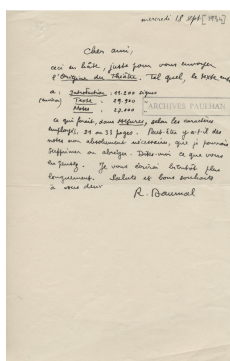 mercredi 18 sept [1934]
Cher ami,
ceci en hâte, juste pour vous envoyer
l'Origine du Théâtre. Tel quel, le texte
a : Introduction : 11.200 signes
(environ) Texte : 29.900
Notes : 27.000
ARCHIVES PAULHAN
ce qui ferait, dans Mesures, selon les caractères
employés, 31 ou 33 pages. Peut-être y a-t-il des
notes non absolument nécessaires, que je pourrais
supprimer ou abréger. Dites-moi ce que vous
en pensez. Je vous écrirai bientôt plus
longuement. Saluts et bons souhaits
à vous deux
R. Daumal